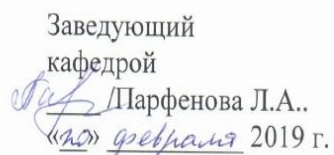 Заведующий
кафедрой
/Парфенова Л.А..
«20» февраля 2019 г.